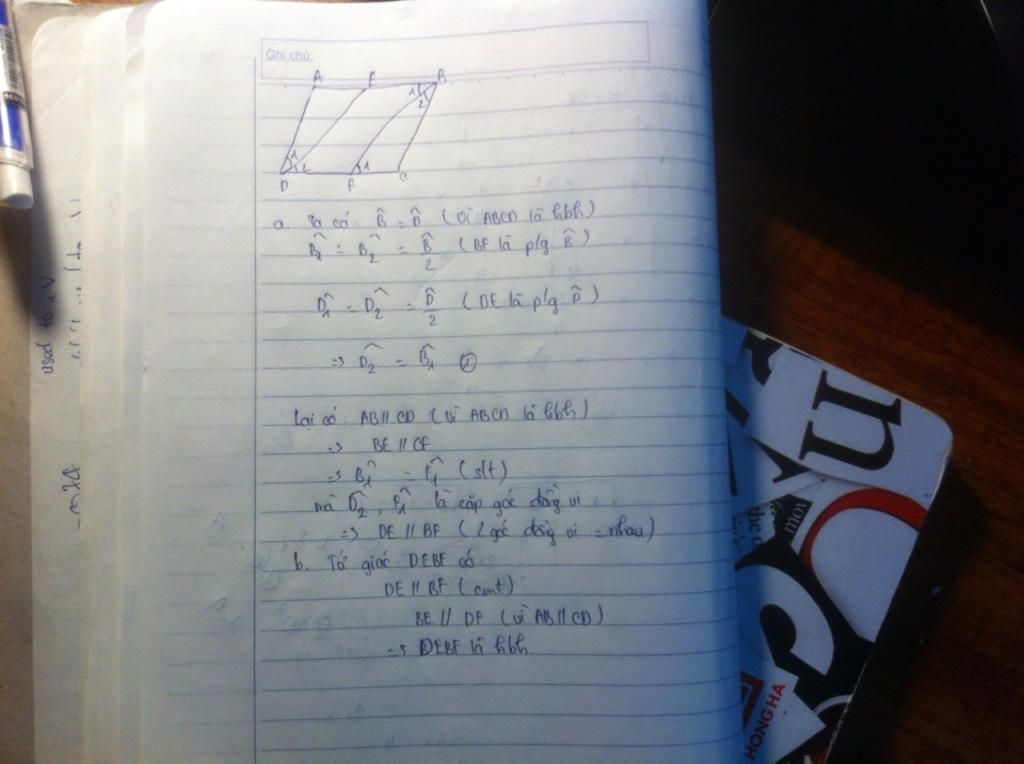 Ghi chú:
A E B
1 2
1 2 1
D F C
a. Ta có: B̂ = D̂ (Vì ABCD là hbh)
B̂1 = B̂2 = B̂/2 (BF là p/g B̂)
D̂1 = D̂2 = D̂/2 (DE là p/g D̂)
=> D̂2 = B̂1 ①
Lại có: AB // CD (vì ABCD là hbh)
=> BE // CF
=> B̂1 = F̂1 (slt)
mà D̂2, F̂1 là cặp góc đồng vi
=> DE // BF (2 góc đồng vi = nhau)
b. Tứ giác DEBF có
DE // BF (cmt)
BE // DF (vì AB // CD)
=> DEBF là hbh.
used to
HONG HA
the